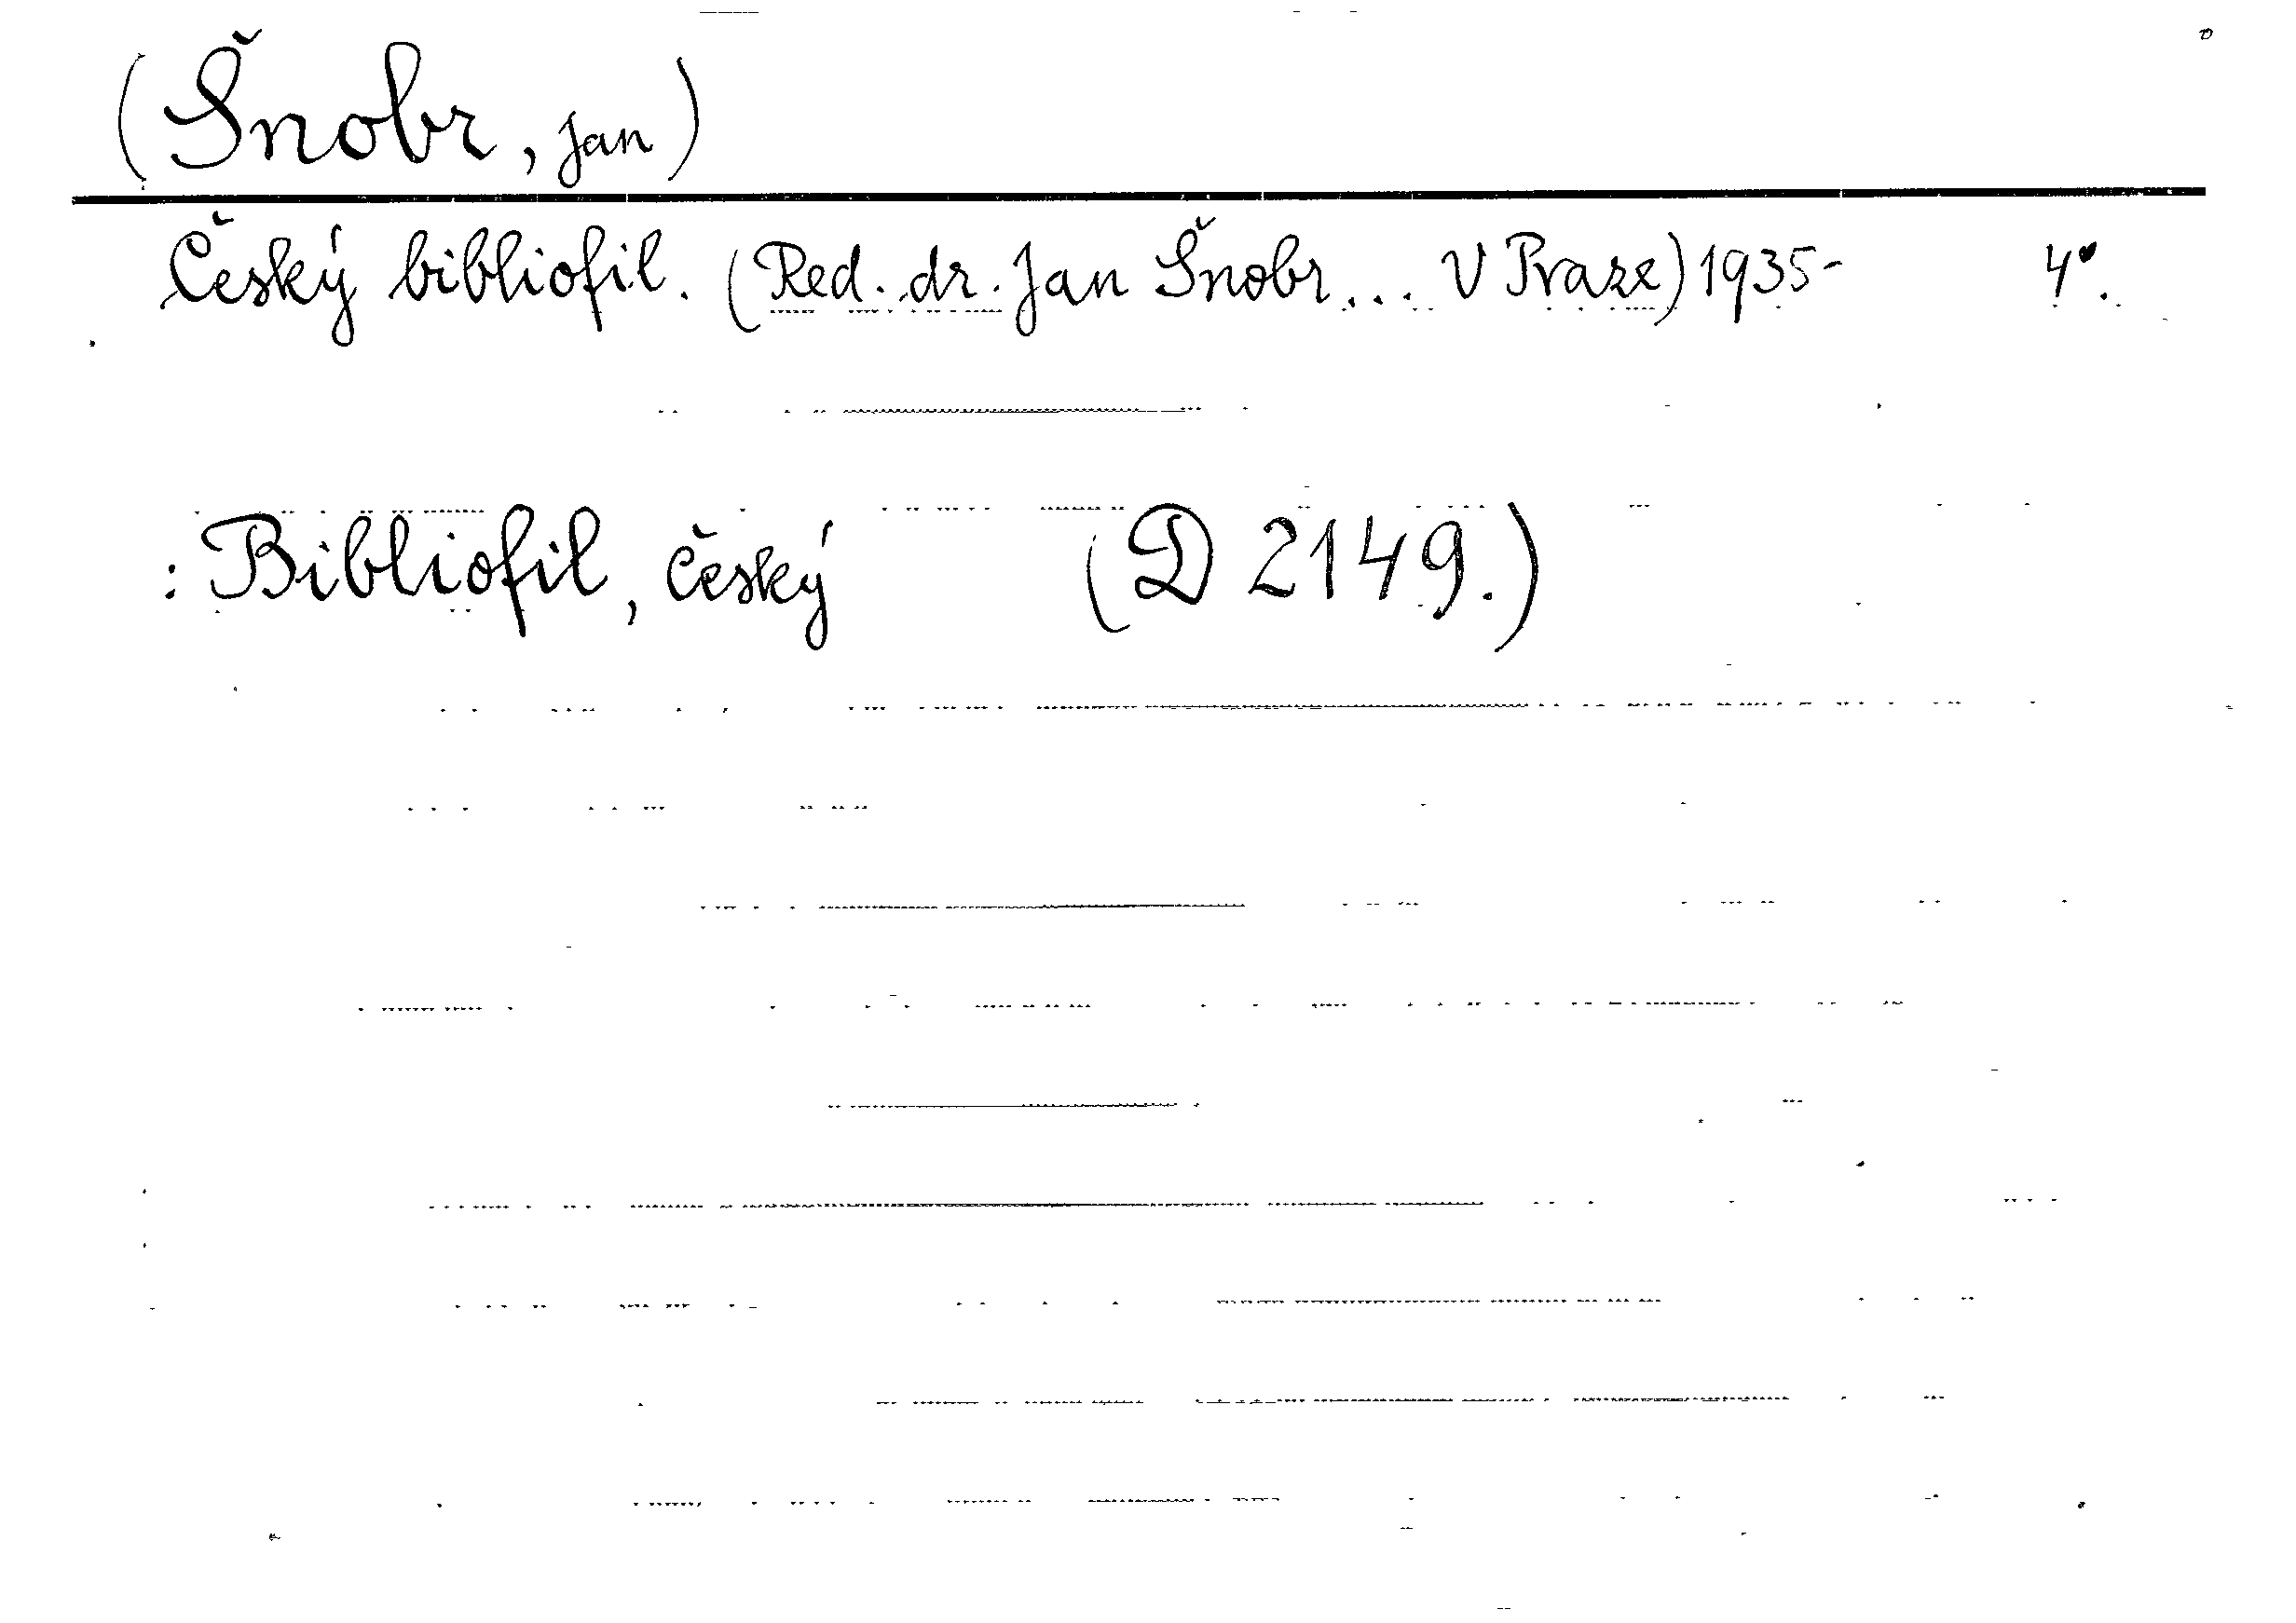 (Šnobr, Jan)
Český bibliofil. (Red. dr. Jan Šnobr... V Praze) 1935- 4°.
: Bibliofil, český (D 2149.)